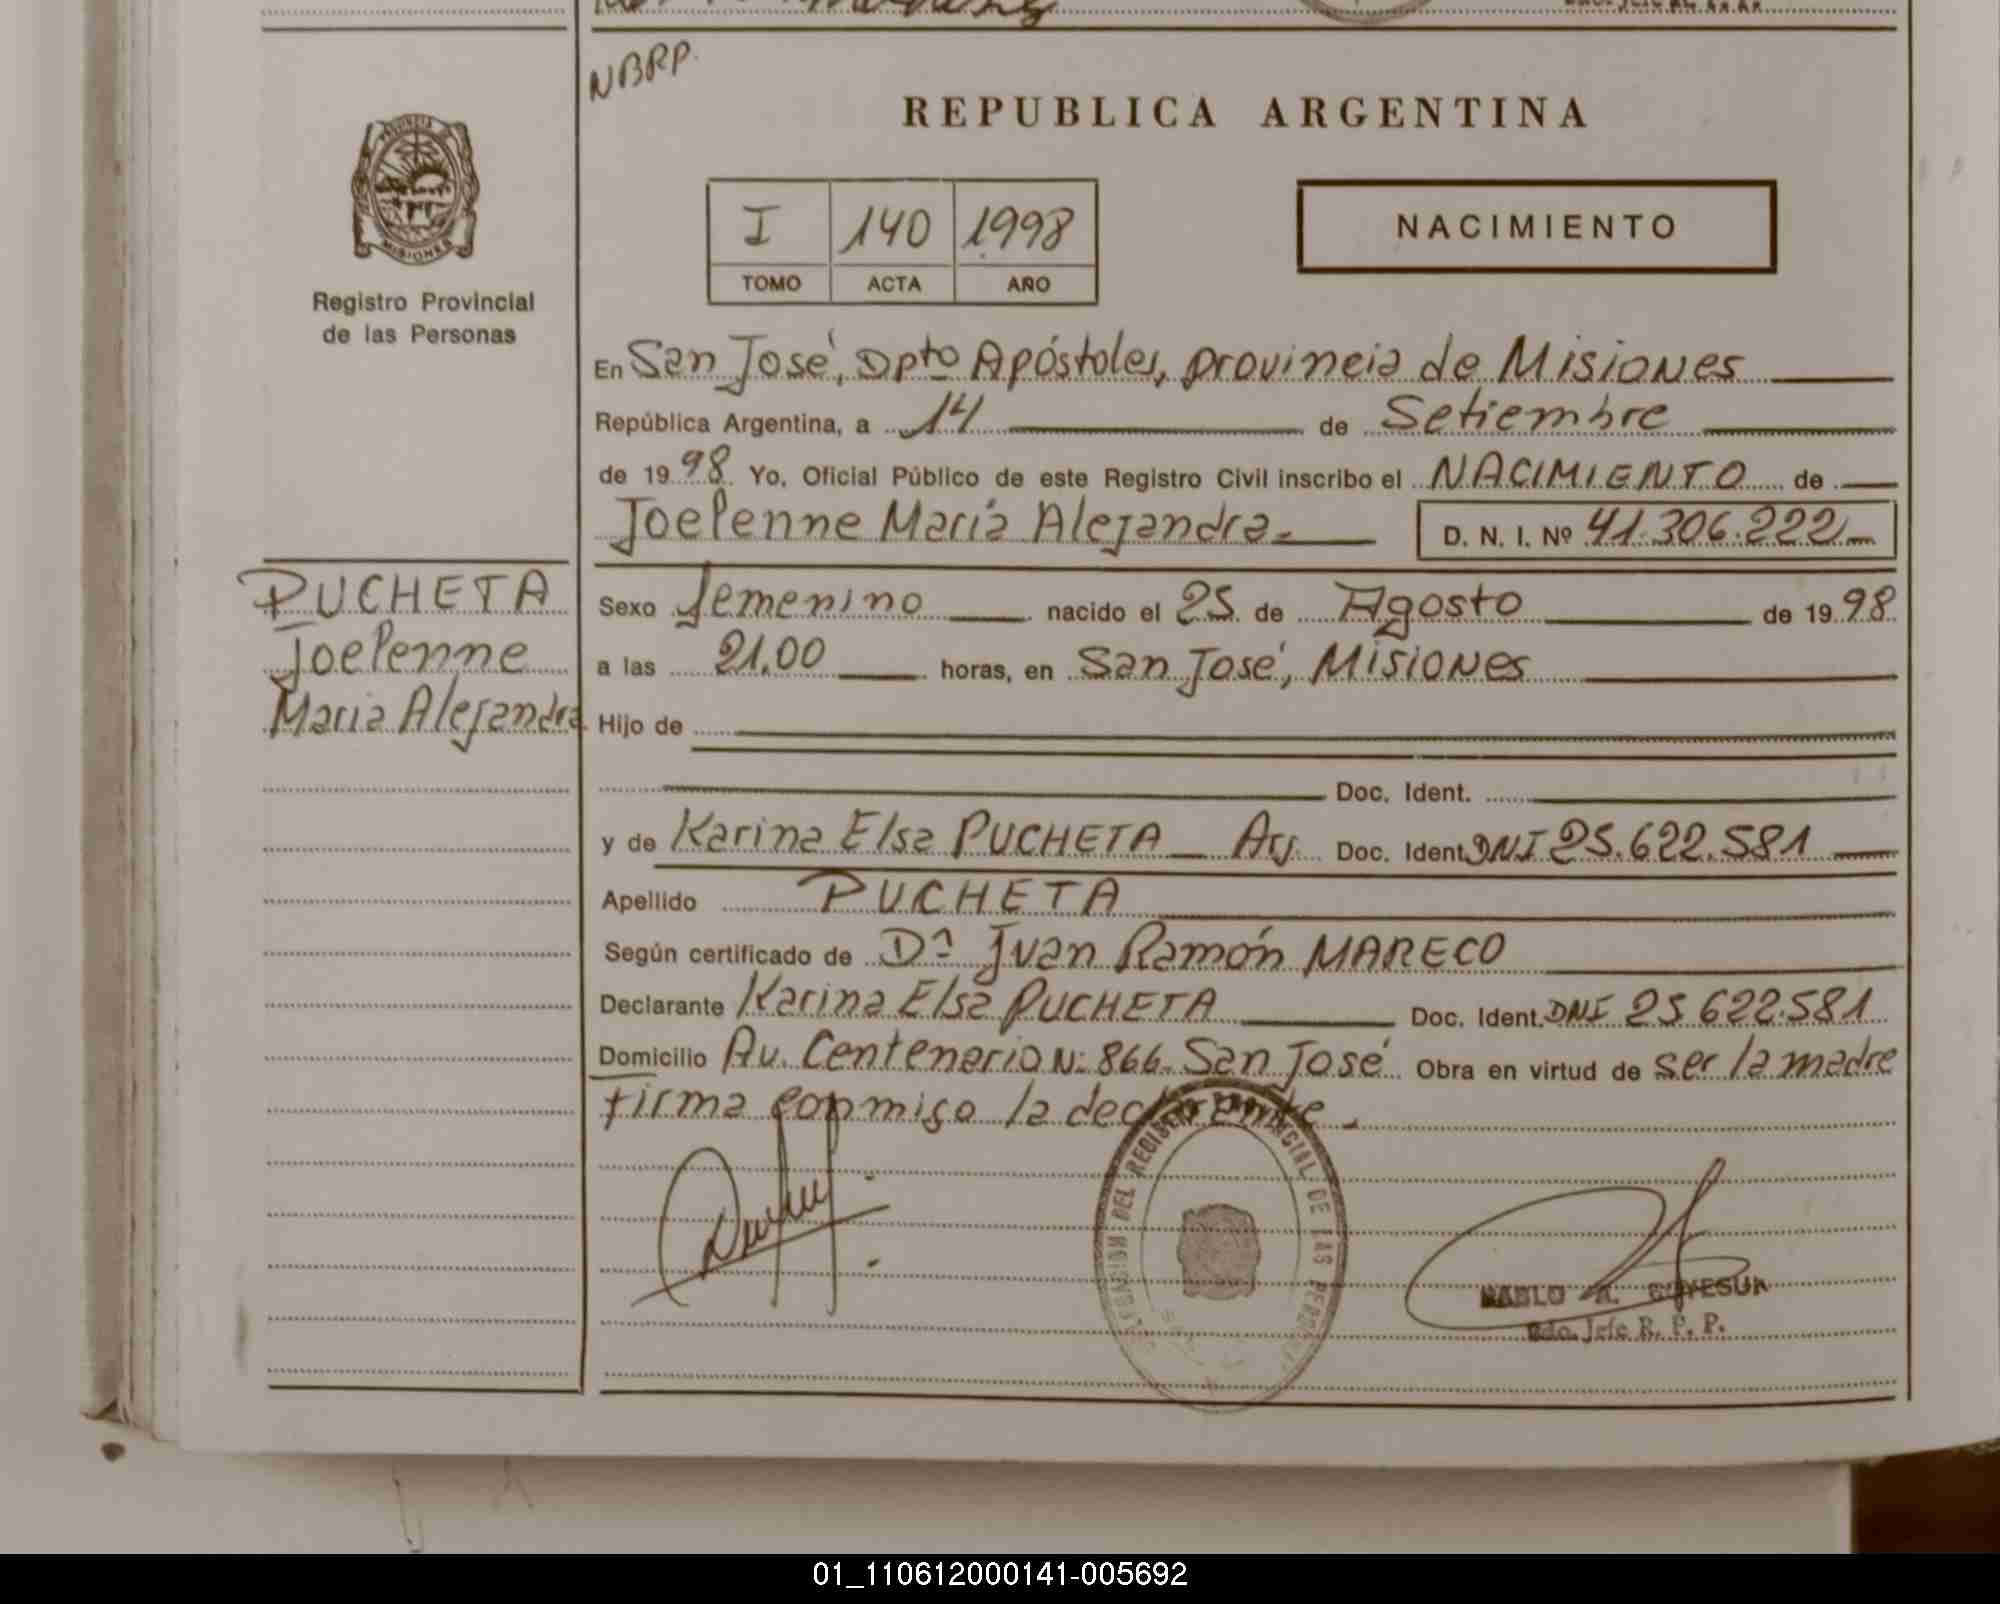 NBRP.
REPUBLICA ARGENTINA
PROVINCIA D
MISIONES
Registro Provincial
de las Personas
I 140 1998
TOMO ACTA AÑO
NACIMIENTO
En San José, Dpto Apóstoles, provincia de Misiones
República Argentina, a 14 de Setiembre
de 1998 Yo, Oficial Público de este Registro Civil inscribo el NACIMIENTO de
Joelenne María Alejandra.- D. N. I. Nº 41.306.222
PUCHETA
Joelenne
Maria Alejandra
Sexo femenino nacido el 25 de Agosto de 1998
a las 21,00 horas, en San José, Misiones
Hijo de
Doc. Ident.
y de Karina Elsa PUCHETA Arg. Doc. Ident. DNI 25.622.581
Apellido PUCHETA
Según certificado de Dn Juan Ramón MARECO
Declarante Karina Elsa PUCHETA Doc. Ident. DNI 25 622.581
Domicilio Av. Centenario N: 866- San José Obra en virtud de ser la madre
firma conmigo la declarante.
DEL REGISTRO PROVINCIAL DE LAS
PABLO A.
Jefe R. P. P.
01_110612000141-005692